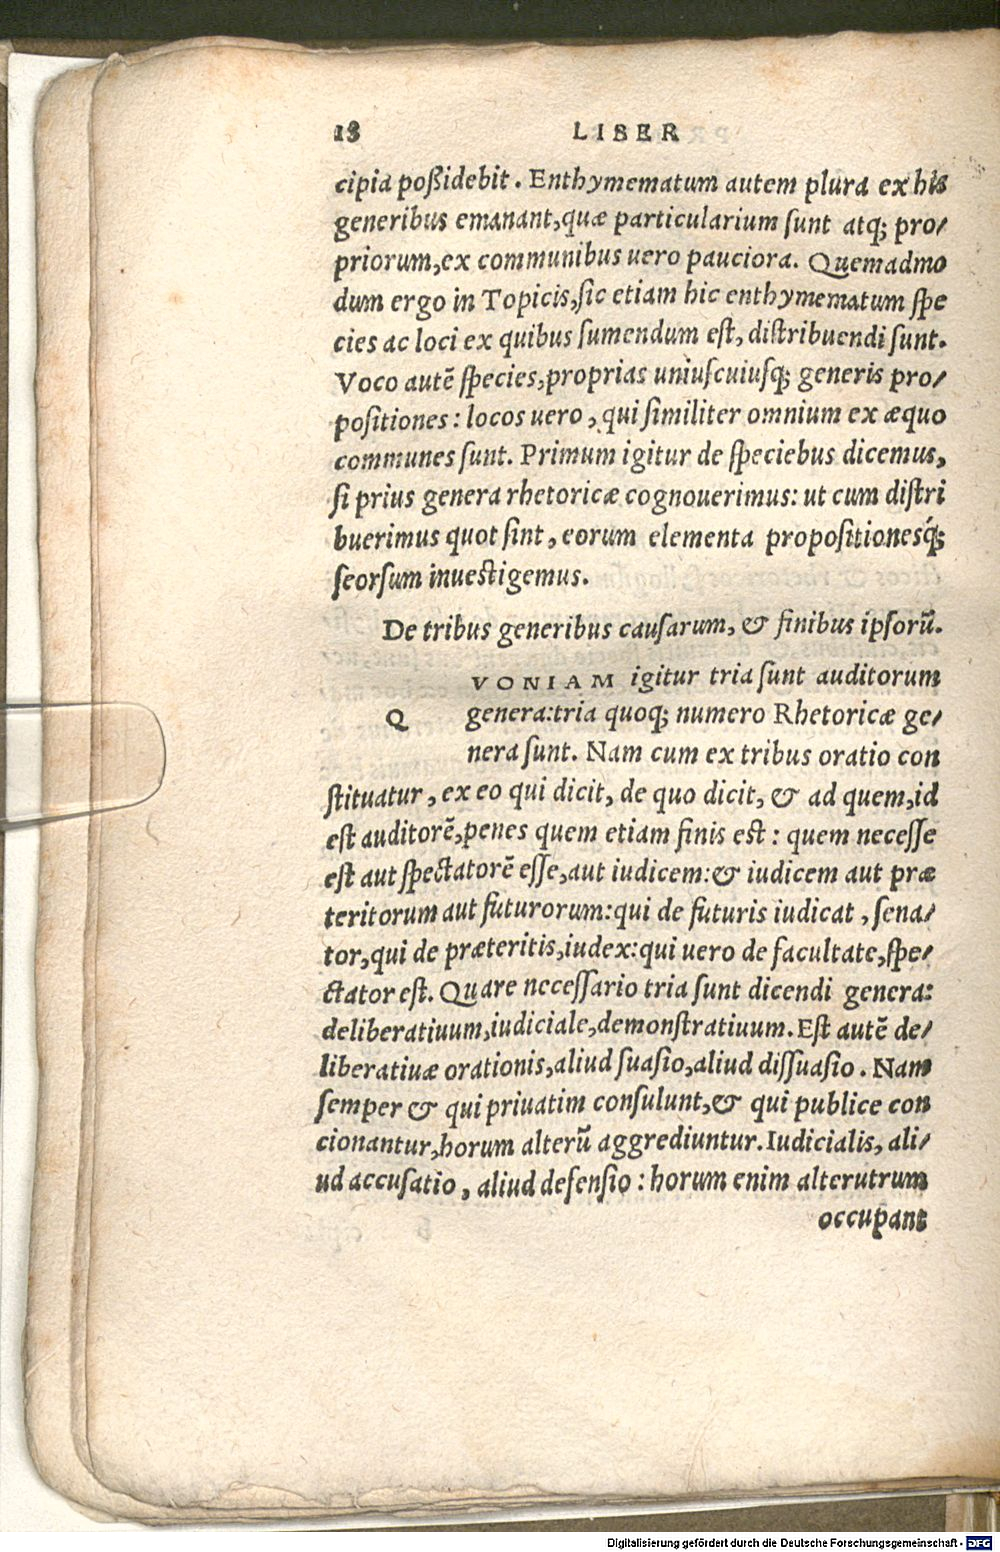 18 LIBER
cipia poßidebit. Enthymematum autem plura ex his
generibus emanant, quæ particularium sunt atq; pro/
priorum, ex communibus uero pauciora. Quemadmo
dum ergo in Topicis, sic etiam hic enthymematum spe
cies ac loci ex quibus sumendum est, distribuendi sunt.
Voco autē species, proprias uniuscuiusq; generis pro/
positiones: locos uero, qui similiter omnium ex æquo
communes sunt. Primum igitur de speciebus dicemus,
si prius genera rhetoricæ cognouerimus: ut cum distri
buerimus quot sint, eorum elementa propositionesq́;
seorsum inuestigemus.
De tribus generibus causarum, & finibus ipsorū.
VONIAM igitur tria sunt auditorum
Q genera: tria quoq; numero Rhetoricæ ge/
nera sunt. Nam cum ex tribus oratio con
stituatur, ex eo qui dicit, de quo dicit, & ad quem, id
est auditorē, penes quem etiam finis est: quem necesse
est aut spectatorē esse, aut iudicem: & iudicem aut præ
teritorum aut futurorum: qui de futuris iudicat, sena/
tor, qui de præteritis, iudex: qui uero de facultate, spe/
ctator est. Quare necessario tria sunt dicendi genera:
deliberatiuum, iudiciale, demonstratiuum. Est autē de/
liberatiuæ orationis, aliud suasio, aliud dissuasio. Nam
semper & qui priuatim consulunt, & qui publice con
cionantur, horum alterū aggrediuntur. Iudicialis, ali/
ud accusatio, aliud defensio: horum enim alterutrum
occupant
Digitalisierung gefördert durch die Deutsche Forschungsgemeinschaft - DFG